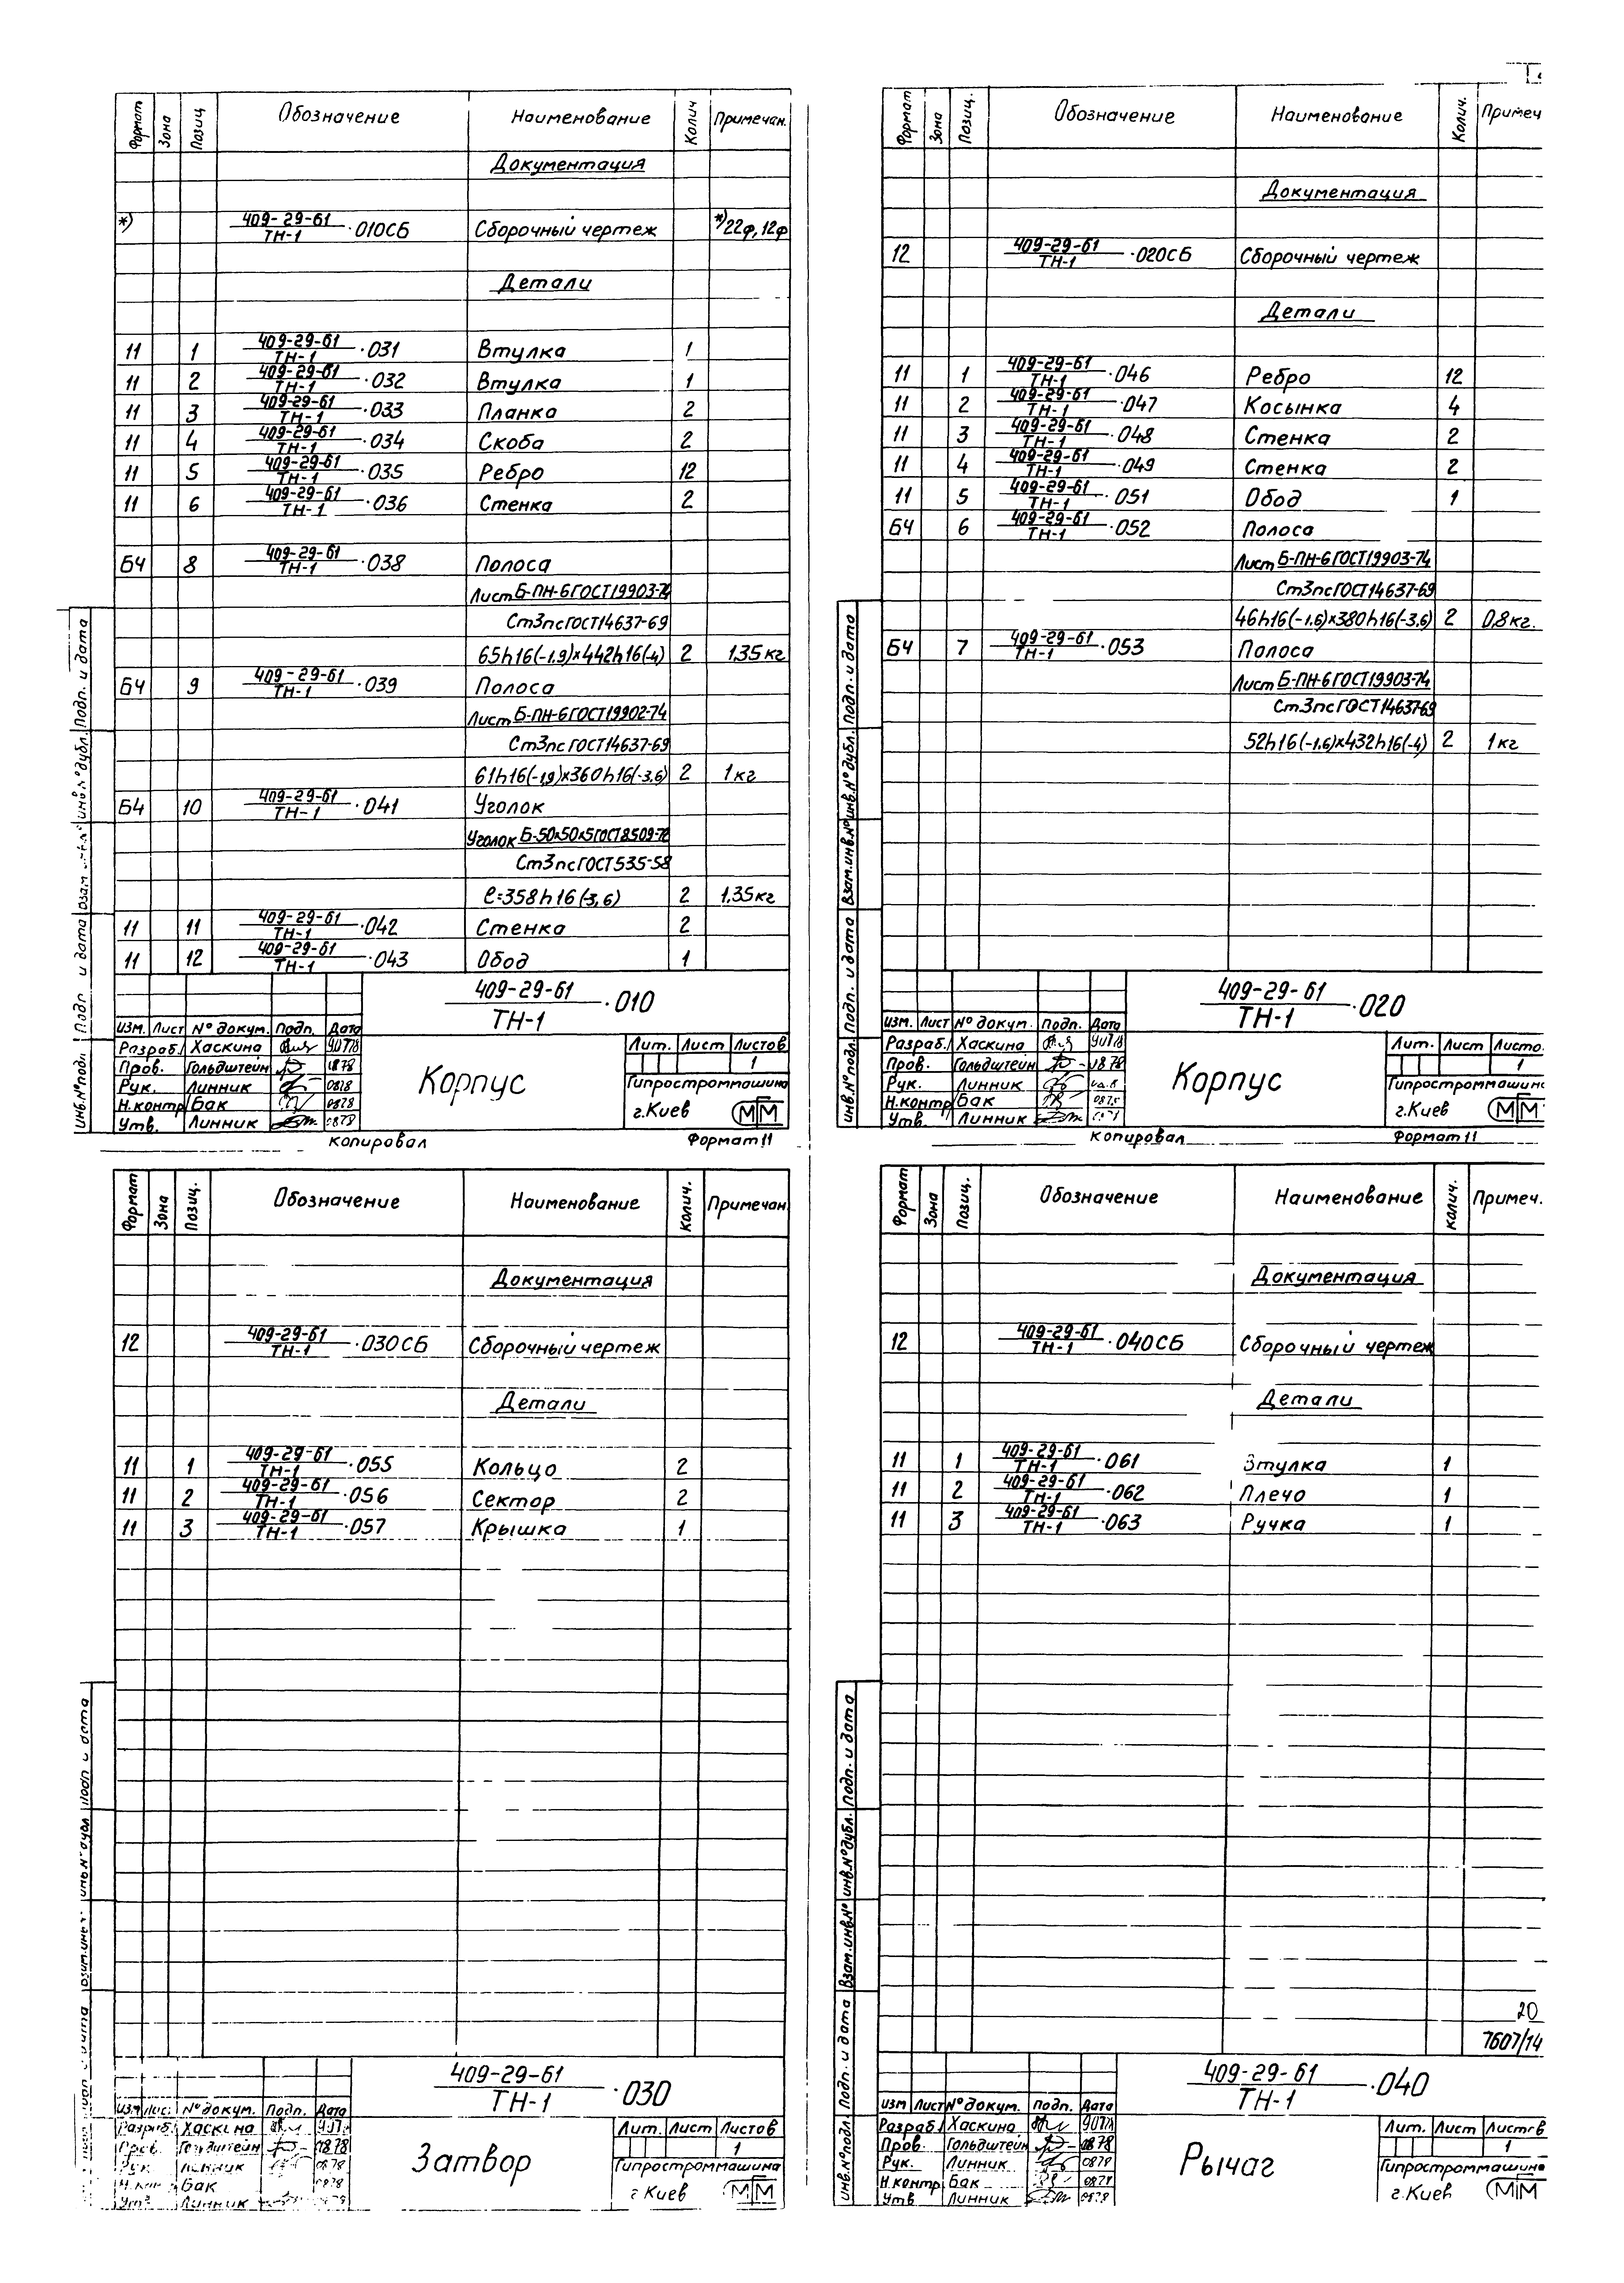 Формат Зона Позиц Обозначение Наименование Колич Примечан.
Документация
*) 409-29-61/ТН-1 ·010СБ Сборочный чертеж *)22ф,12ф
Детали
11 1 409-29-61/ТН-1 ·031 Втулка 1
11 2 409-29-61/ТН-1 ·032 Втулка 1
11 3 409-29-61/ТН-1 ·033 Планка 2
11 4 409-29-61/ТН-1 ·034 Скоба 2
11 5 409-29-61/ТН-1 ·035 Ребро 12
11 6 409-29-61/ТН-1 ·036 Стенка 2
БЧ 8 409-29-61/ТН-1 ·038 Полоса
Лист Б-ПН-6 ГОСТ19903-74
Ст3псГОСТ14637-69
65h16(-1.9)×442h16(-4) 2 1,35кг
БЧ 9 409-29-61/ТН-1 ·039 Полоса
Лист Б-ПН-6 ГОСТ19902-74
Ст3псГОСТ14637-69
61h16(-1,9)×360h16(-3,6) 2 1кг
БЧ 10 409-29-61/ТН-1 ·041 Уголок
Уголок Б-50х50х5ГОСТ8509-72
Ст3псГОСТ535-58
ℓ=358h16(-3,6) 2 1,35кг
11 11 409-29-61/ТН-1 ·042 Стенка 2
11 12 409-29-61/ТН-1 ·043 Обод 1
409-29-61/ТН-1 ·010
Изм. Лист № докум. Подп. Дата
Разраб. Хаскина
Пров. Гольдштейн 0878
Рук. Линник 0878
Н.контр Бак 0878
Утв. Линник 0878
Корпус
Лит. Лист Листов
1
Гипростроммашина
г.Киев
Инв.№подл Подп и дата Взам Инв.№дубл. Подп. и дата
копировал Формат 11
Формат Зона Позиц. Обозначение Наименование Колич. Примеч
Документация
12 409-29-61/ТН-1 ·020СБ Сборочный чертеж
Детали
11 1 409-29-61/ТН-1 ·046 Ребро 12
11 2 409-29-61/ТН-1 ·047 Косынка 4
11 3 409-29-61/ТН-1 ·048 Стенка 2
11 4 409-29-61/ТН-1 ·049 Стенка 2
11 5 409-29-61/ТН-1 ·051 Обод 1
БЧ 6 409-29-61/ТН-1 ·052 Полоса
Лист Б-ПН-6 ГОСТ19903-74
Ст3псГОСТ14637-69
46h16(-1.6)×380h16(-3,6) 2 0,8кг.
БЧ 7 409-29-61/ТН-1 ·053 Полоса
Лист Б-ПН-6 ГОСТ19903-74
Ст3псГОСТ14637-69
52h16(-1.6)×432h16(-4) 2 1кг
409-29-61/ТН-1 ·020
Изм. Лист № докум. Подп. Дата
Разраб. Хаскина
Пров. Гольдштейн 0878
Рук. Линник
Н.контр Бак
Утв. Линник
Корпус
Лит. Лист Листо
1
Гипростроммашина
г.Киев
Инв.№подл. Подп. и дата Взам.инв.№ Инв.№дубл. Подп. и дата
копировал Формат 11
Формат Зона Позиц. Обозначение Наименование Колич. Примечан.
Документация
12 409-29-61/ТН-1 ·030СБ Сборочный чертеж
Детали
11 1 409-29-61/ТН-1 ·055 Кольцо 2
11 2 409-29-61/ТН-1 ·056 Сектор 2
11 3 409-29-61/ТН-1 ·057 Крышка 1
409-29-61/ТН-1 ·030
Изм Лис № докум. Подп. Дата
Разраб. Хаскина
Пров. Гольдштейн 0878
Рук Линник 0878
Н.кон Бак 0878
Утв. Линник 0878
Затвор
Лит. Лист Листов
1
Гипростроммашина
г.Киев
Формат Зона Позиц. Обозначение Наименование Колич. Примеч.
Документация
12 409-29-61/ТН-1 ·040СБ Сборочный чертеж
Детали
11 1 409-29-61/ТН-1 ·061 Втулка 1
11 2 409-29-61/ТН-1 ·062 Плечо 1
11 3 409-29-61/ТН-1 ·063 Ручка 1
20
7607/14
409-29-61/ТН-1 ·040
Изм Лист № докум. Подп. Дата
Разраб. Хаскина
Пров. Гольдштейн 0878
Рук. Линник 0878
Н.контр Бак 0878
Утв Линник 0878
Рычаг
Лит. Лист Листов
1
Гипростроммашина
г.Киев
Инв.№подл. Подп. и дата Взам.инв.№ Инв.№дубл. Подп. и дата